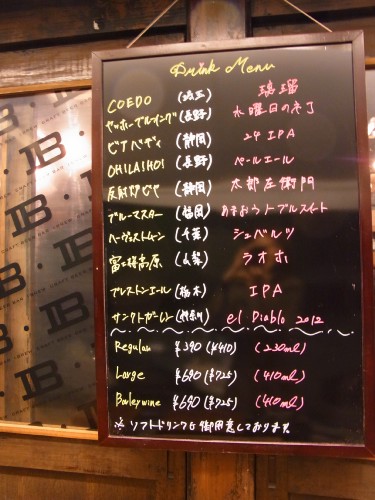 Drink Menu
COEDO (埼玉) 瑠璃
ヤッホーブルーイング (長野) 水曜日のネコ
ピアベディ (静岡) 24 IPA
OH!LA!HO! (長野) ペールエール
反射炉ビヤ (静岡) 太郎左衛門
ブルーマスター (福岡) あまおうノーブルスイート
ハーヴェストムーン (千葉) シュバルツ
富士桜高原 (山梨) ラオホ
プレストンエール (栃木) IPA
サンクトガーレン (神奈川) el Diablo 2012
Regular ¥390 (¥410) (230ml)
Large ¥690 (¥725) (410ml)
Barleywine ¥690 (¥725) (410ml)
※ ソフトドリンクも御用意しております
IB
CRAFT BEER BAR